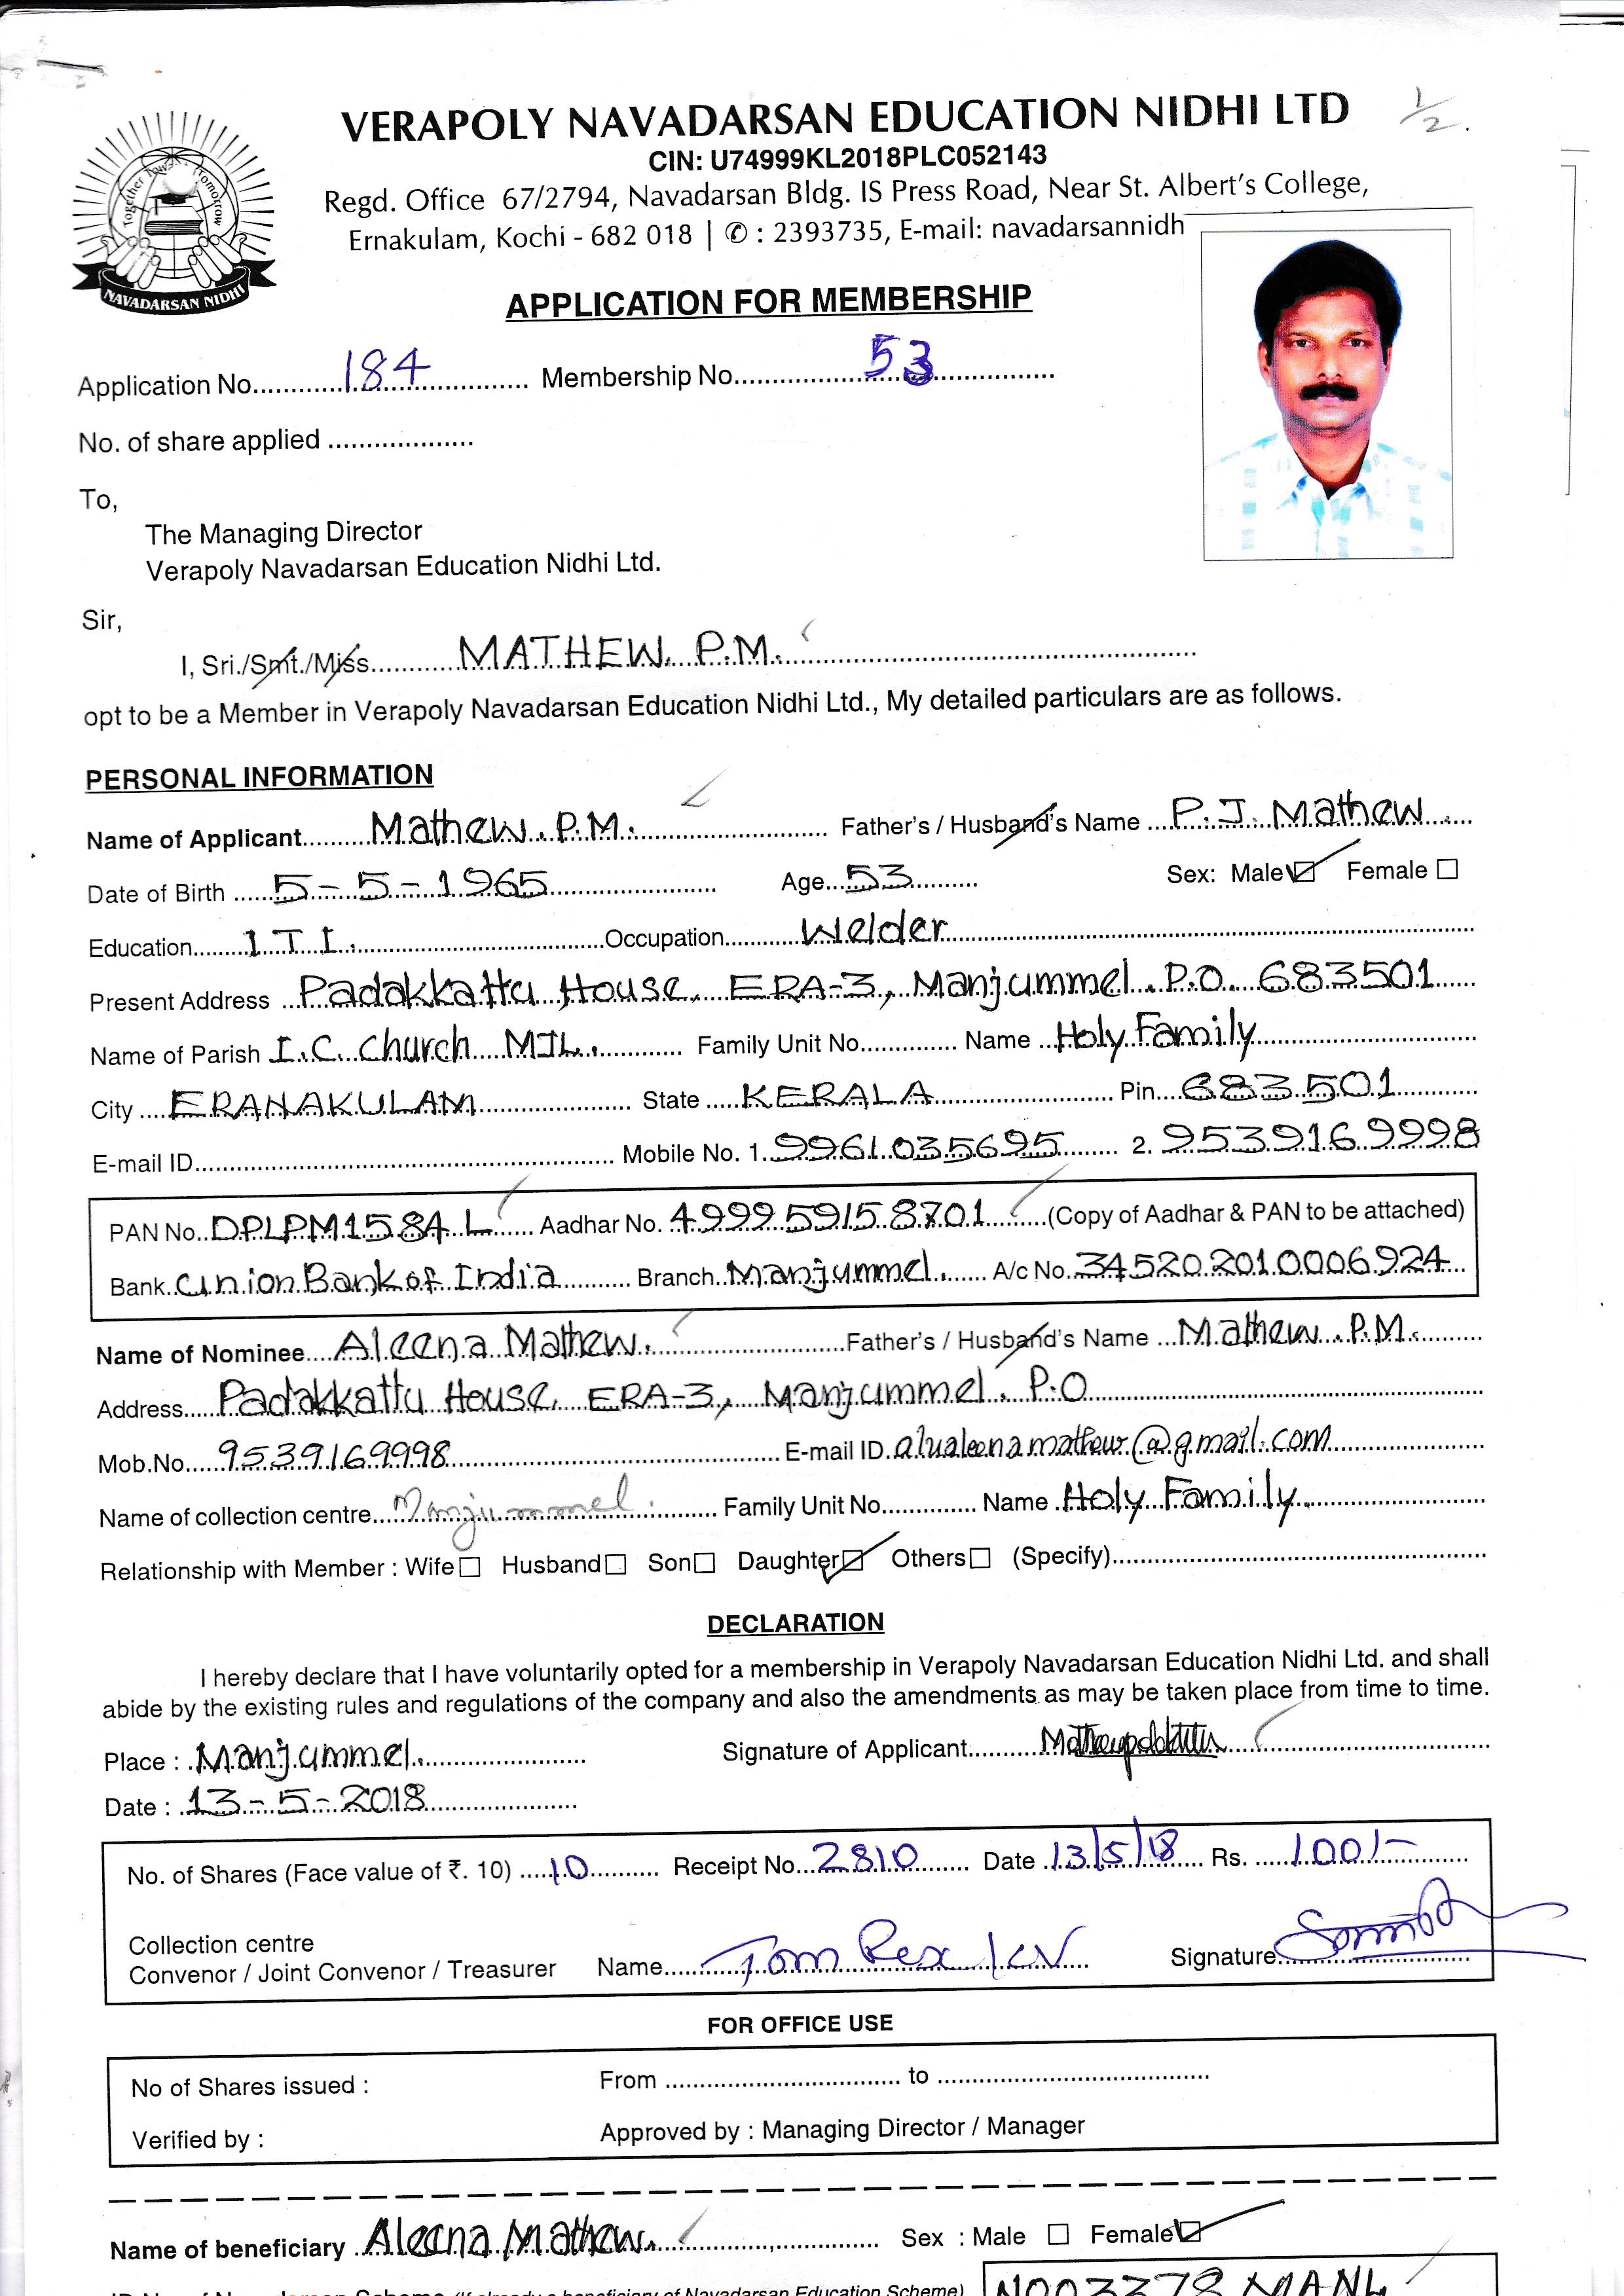 1/2.
VERAPOLY NAVADARSAN EDUCATION NIDHI LTD
CIN: U74999KL2018PLC052143
Regd. Office 67/2794, Navadarsan Bldg. IS Press Road, Near St. Albert's College,
Ernakulam, Kochi - 682 018 | ✆ : 2393735, E-mail: navadarsannidh
Together Tow Tomorrow
NAVADARSAN NIDHI
APPLICATION FOR MEMBERSHIP
Application No. 184 Membership No. 53
No. of share applied
To,
The Managing Director
Verapoly Navadarsan Education Nidhi Ltd.
Sir,
I, Sri./Smt./Miss MATHEW. P.M.
opt to be a Member in Verapoly Navadarsan Education Nidhi Ltd., My detailed particulars are as follows.
PERSONAL INFORMATION
Name of Applicant Mathew. P.M. Father's / Husband's Name P.J. Mathew
Date of Birth 5-5-1965 Age 53 Sex: Male ☑ Female ☐
Education I T I. Occupation Welder
Present Address Padakkattu House, ERA-3, Manjummel. P.O. 683501
Name of Parish I.C. Church MJL. Family Unit No. Name Holy Family
City ERANAKULAM State KERALA Pin 683501
E-mail ID Mobile No. 1. 9961035695 2. 9539169998
PAN No. DPLPM1584L Aadhar No. 499959158701 (Copy of Aadhar & PAN to be attached)
Bank Union Bank of India Branch Manjummel. A/c No. 345202010006924
Name of Nominee Aleena Mathew. Father's / Husband's Name Mathew. P.M.
Address Padakkattu House, ERA-3, Manjummel. P.O
Mob.No. 9539169998 E-mail ID. alualeenamathew@gmail.com
Name of collection centre Manjummel. Family Unit No. Name Holy Family
Relationship with Member : Wife ☐ Husband ☐ Son ☐ Daughter ☑ Others ☐ (Specify)
DECLARATION
I hereby declare that I have voluntarily opted for a membership in Verapoly Navadarsan Education Nidhi Ltd. and shall
abide by the existing rules and regulations of the company and also the amendments as may be taken place from time to time.
Place : Manjummel. Signature of Applicant
Date : 13-5-2018
No. of Shares (Face value of ₹. 10) 10 Receipt No. 2810 Date 13/5/18 Rs. 100/-
Collection centre
Convenor / Joint Convenor / Treasurer Name Tom Rex / CV Signature
FOR OFFICE USE
No of Shares issued : From to
Verified by : Approved by : Managing Director / Manager
Name of beneficiary Aleena Mathew. Sex : Male ☐ Female ☑
(If already a beneficiary of Navadarsan Education Scheme) N003378 MANL